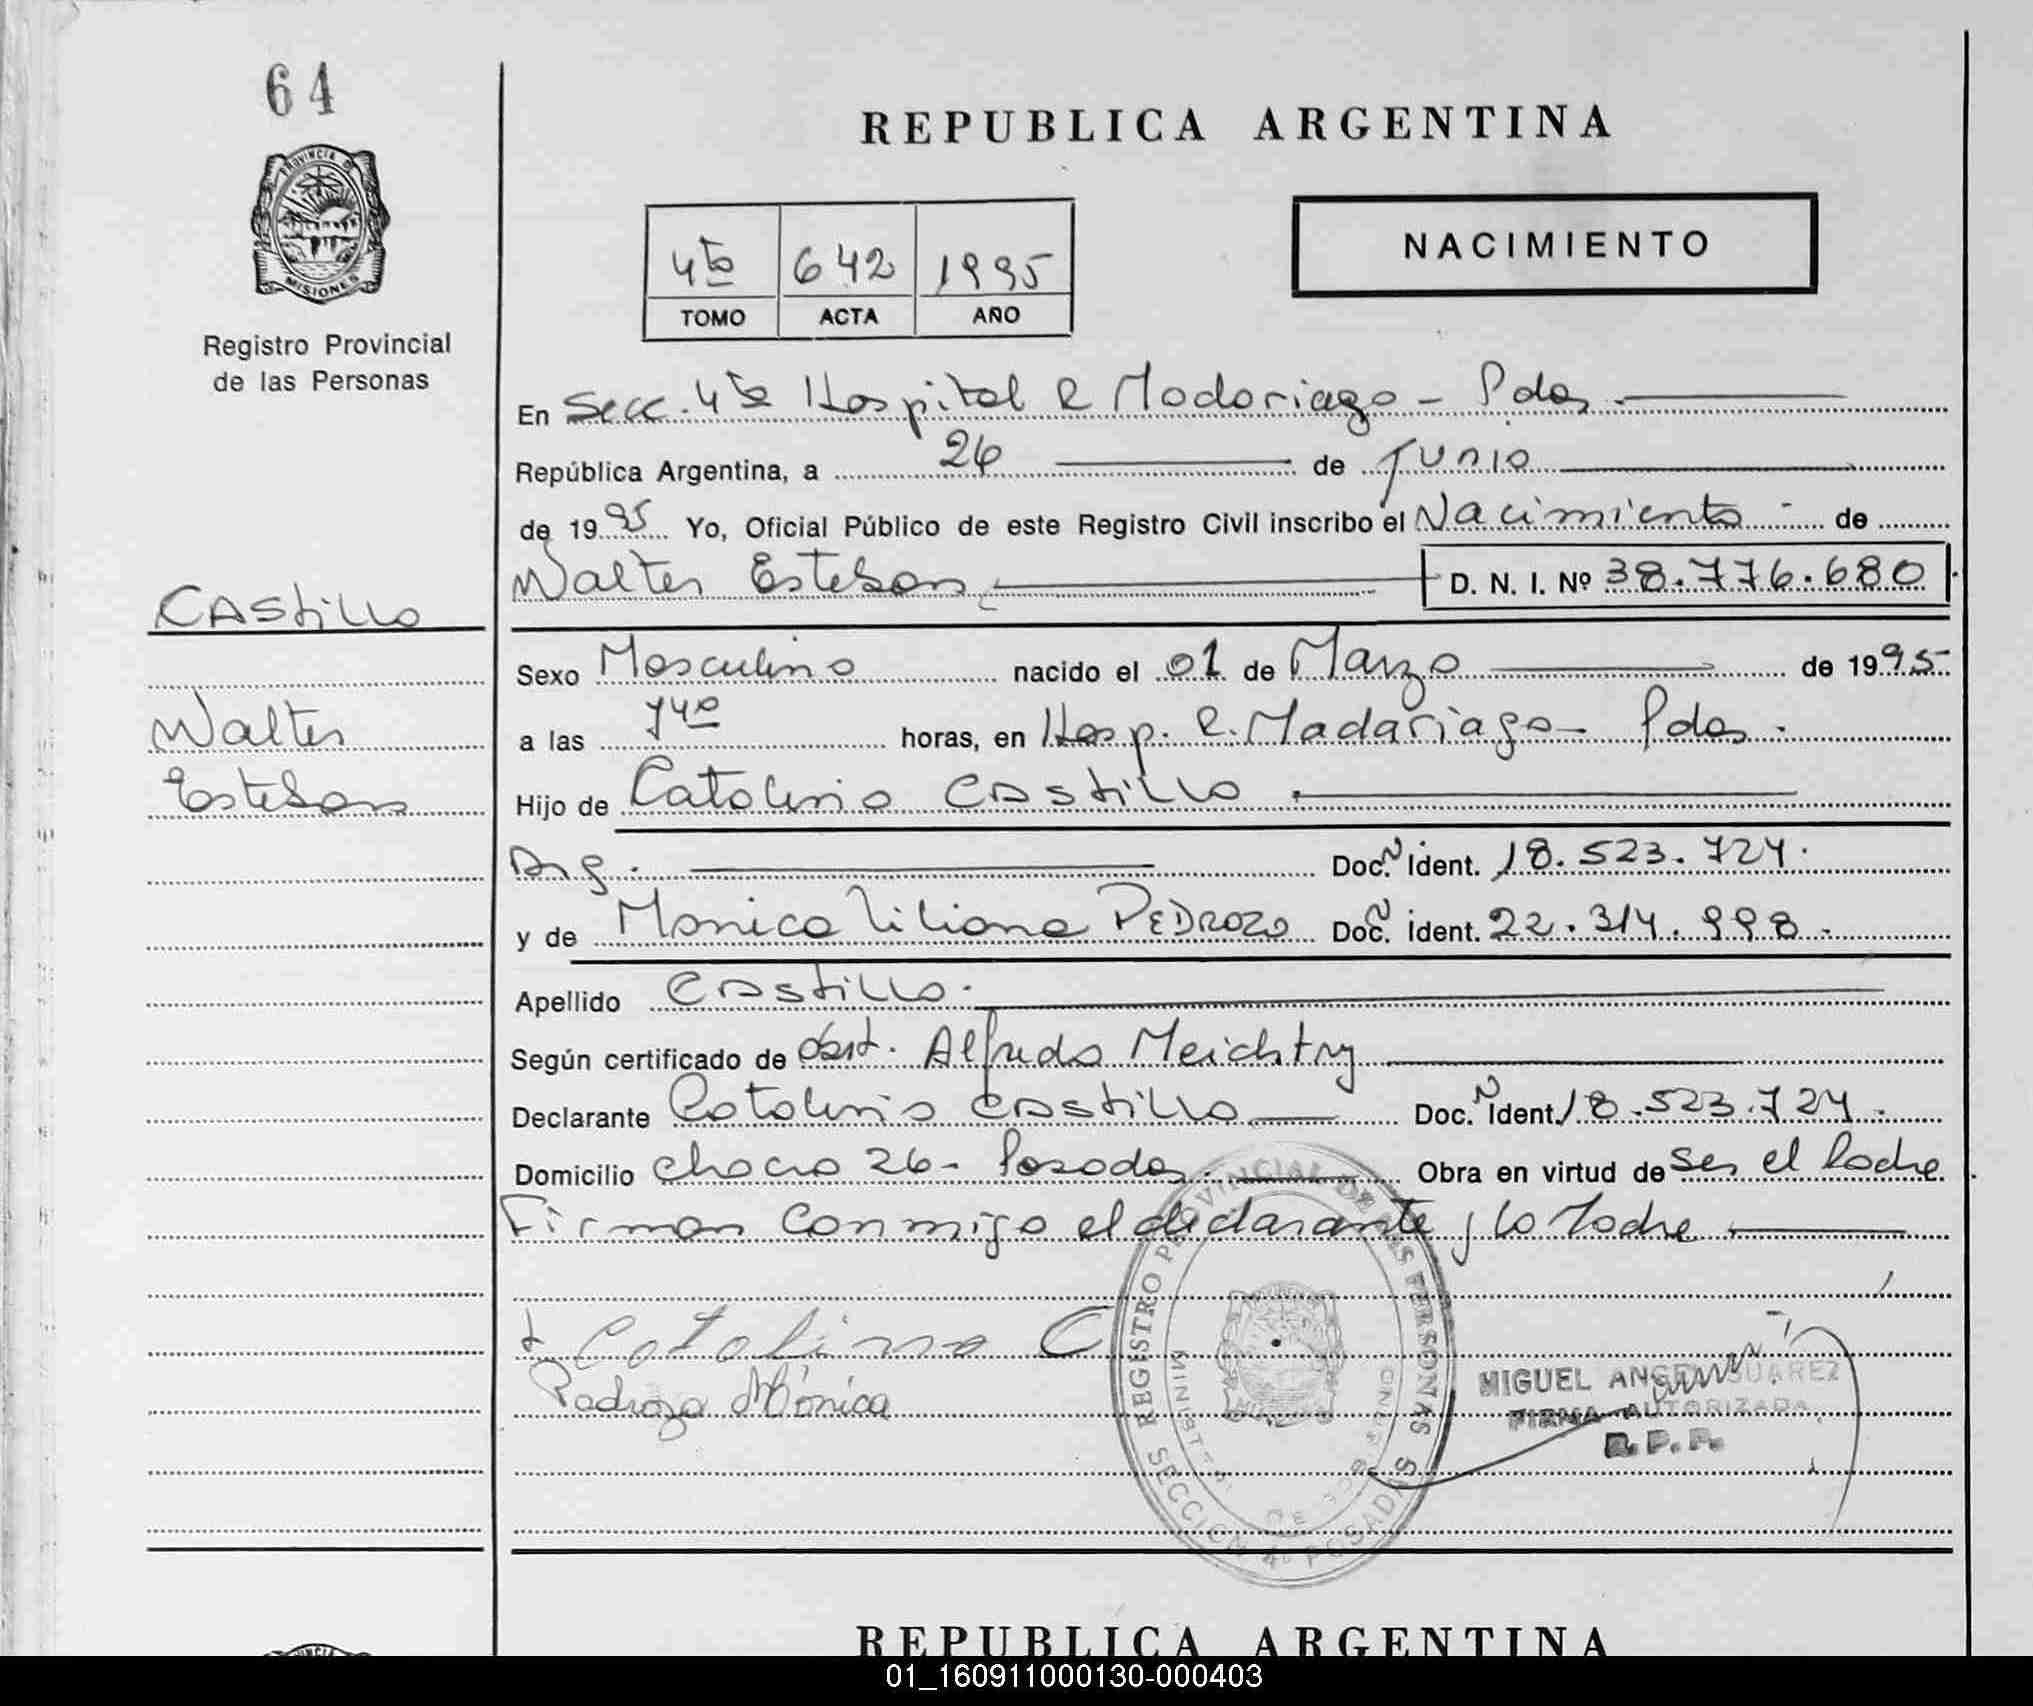 64
REPUBLICA ARGENTINA
PROVINCIA DE
MISIONES
Registro Provincial
de las Personas
NACIMIENTO
4ta 642 1995
TOMO ACTA AÑO
En Secc. 4ta Hospital R Madariaga - Pdas.
República Argentina, a 26 de Junio
de 1995 Yo, Oficial Público de este Registro Civil inscribo el Nacimiento - de
Walter Esteban D. N. I. Nº 38.776.680
Castillo
Walter
Esteban
Sexo Masculino nacido el 01 de Marzo de 1995
a las 740 horas, en Hosp. R. Madariaga - Pdas.
Hijo de Catalino Castillo
Arg. Doc. N Ident. 18.523.724.
y de Monica Liliana PEDROZO Doc. N ident. 22.314.998.
Apellido Castillo.
Según certificado de Obst. Alfredo Meichtry
Declarante Catalino Castillo Doc. N Ident. 18.523.724.
Domicilio Chacra 26 - Posadas. Obra en virtud de Ser el Padre
Firman conmigo el declarante y la Madre
+ Catalino C
Pedrozo Mónica
REGISTRO PROVINCIAL DE LAS PERSONAS
SECCION 4º POSADAS
MIGUEL ANGEL SUAREZ
FIRMA AUTORIZADA
R.P.P.
REPUBLICA ARGENTINA
01_160911000130-000403